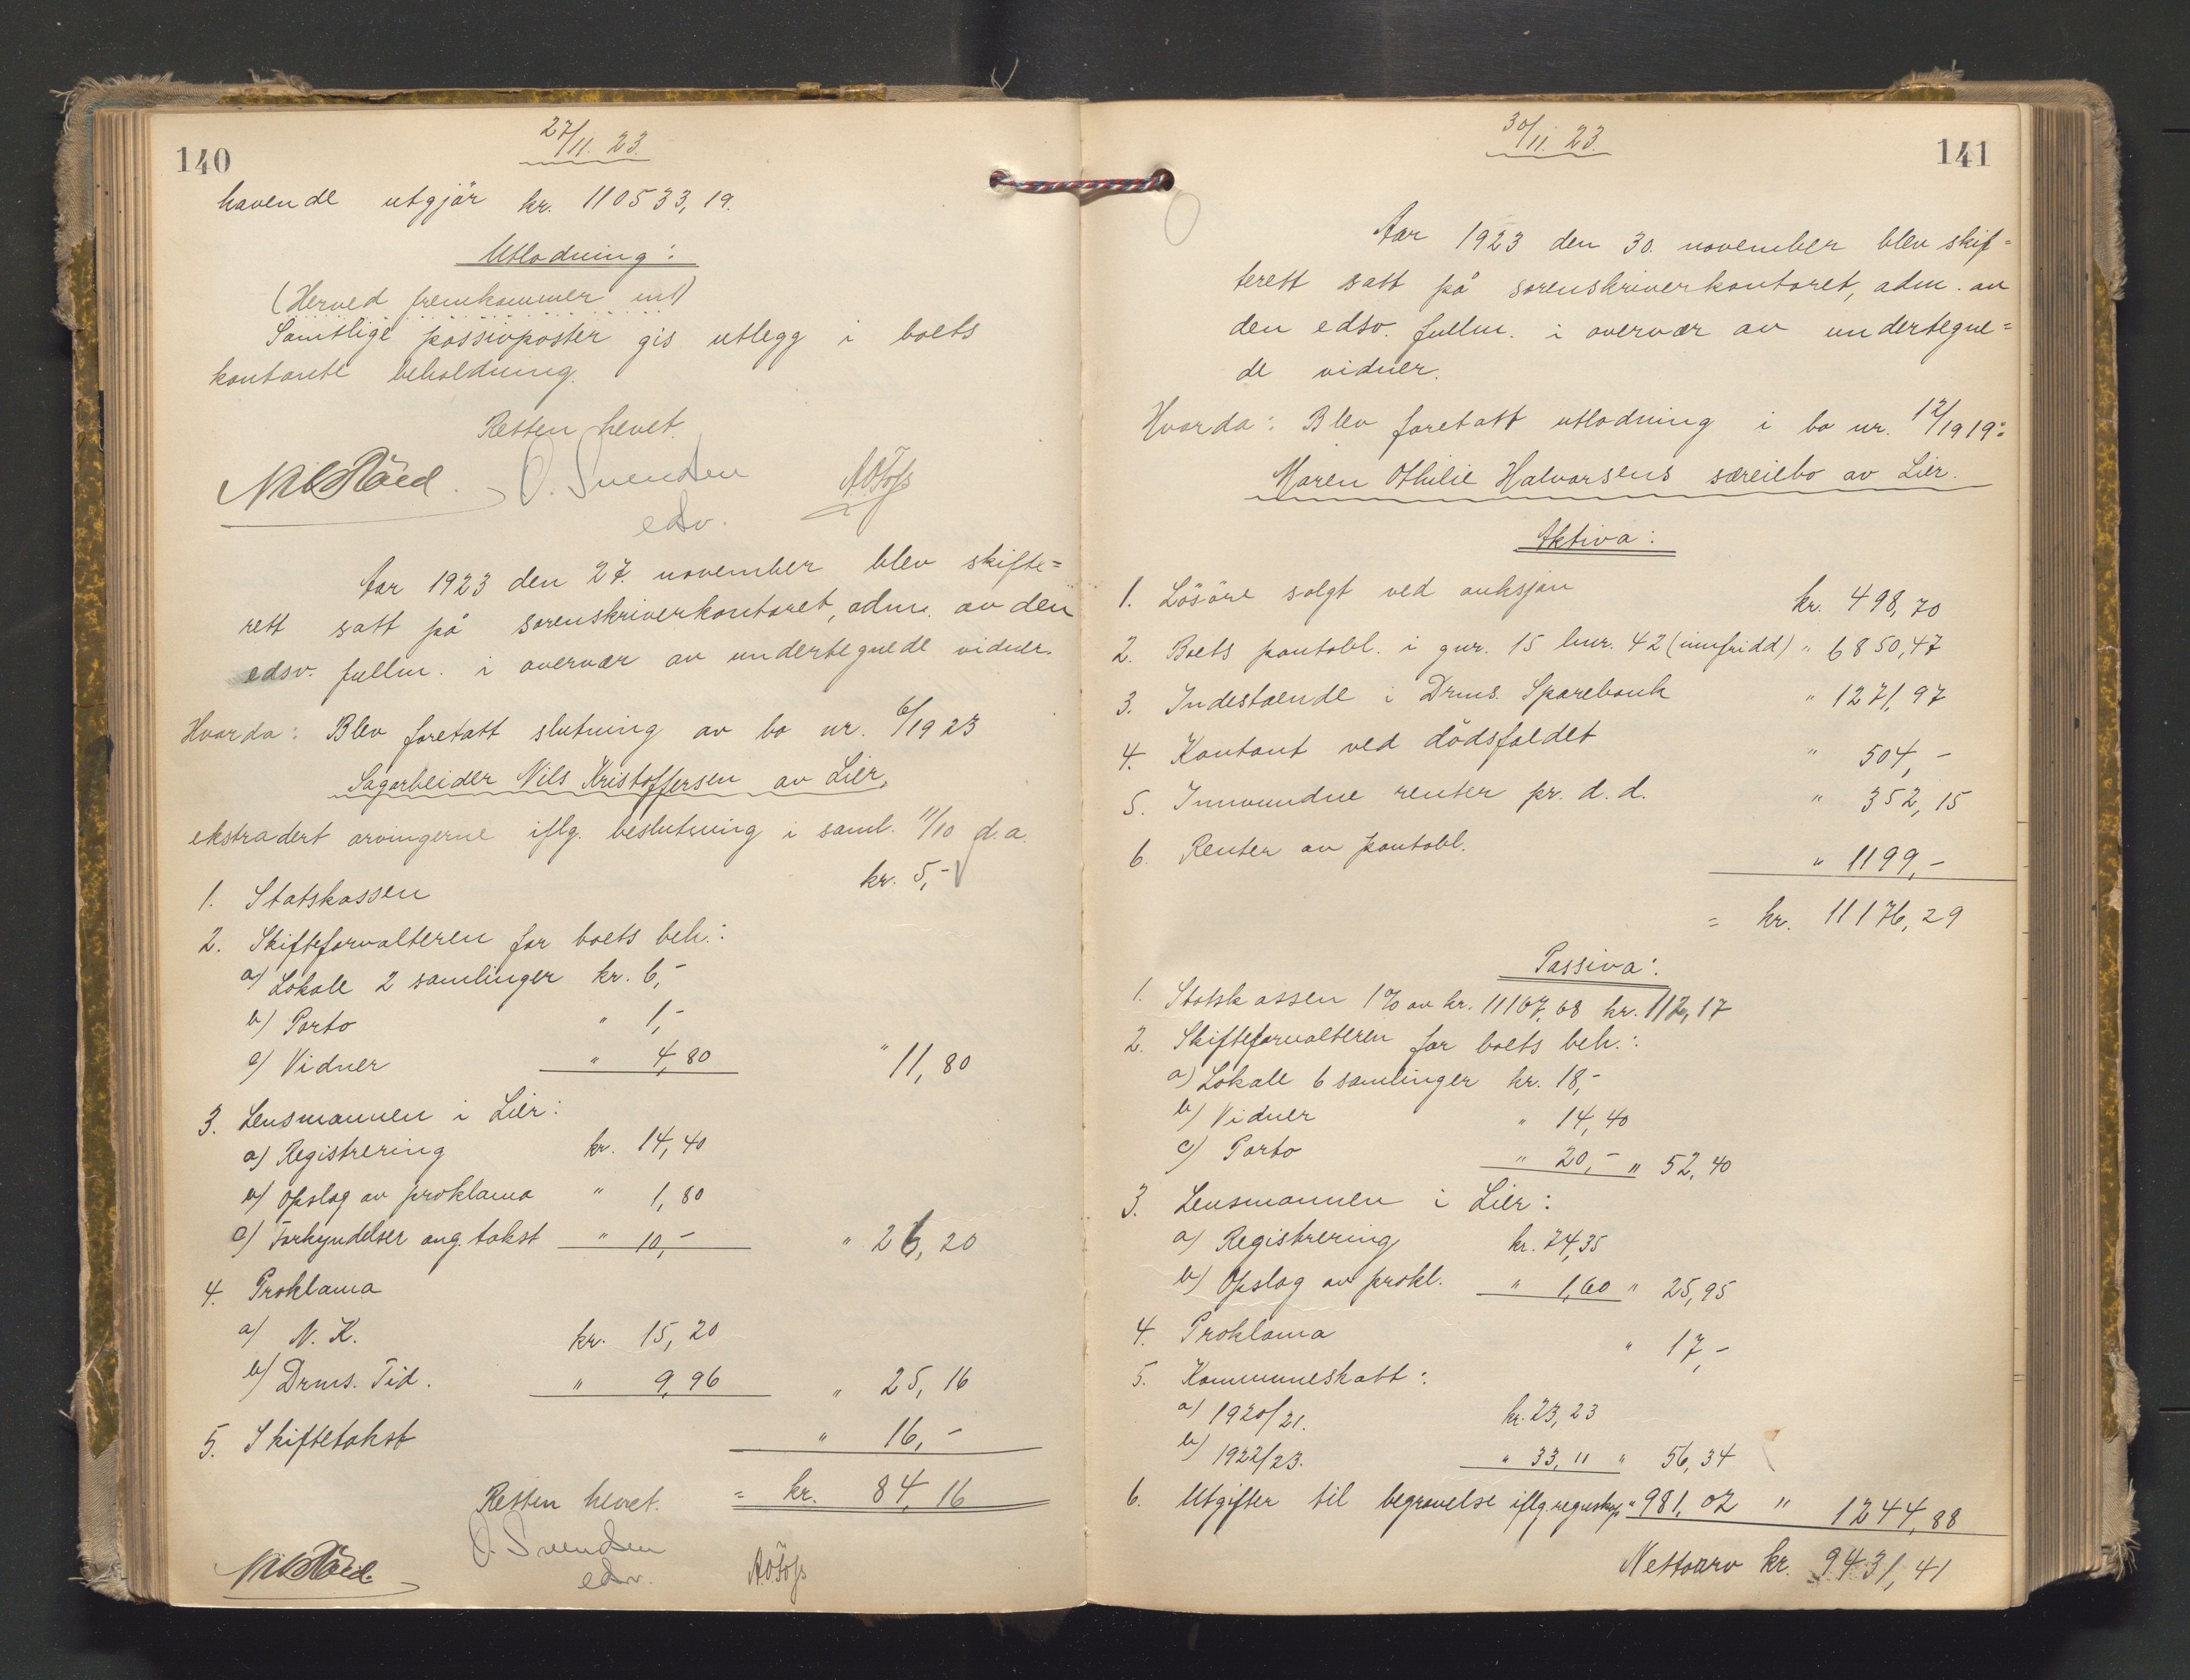 140
27/11. 23.
havende utgjör kr. 110533,19.
Utlodning:
(Herved fremkommer intl)
Samtlige passivposter gis utlegg i boets
kontante beholdning.
Retten hevet.
O. Svendsen
edsv.
Aar 1923 den 27. november blev skifte=
rett satt på sorenskriverkontoret, adm. av den
edsv. fullm. i overvær av undertegnede vidner.
Hvorda: Blev foretatt slutning av bo nr. 6/1923
Sagarbeider Nils Kristoffersen av Lier,
ekstradert arvingerne iflg. beslutning i saml. 11/10 d.a.
1. Statskassen kr. 5,-
2. Skifteforvalteren for boets beh.:
a) Lokale 2 samlinger kr. 6,-
b) Porto " 1,-
c) Vidner " 4,80 " 11,80
3. Lensmannen i Lier:
a) Registrering kr. 14,40
b) Opslag av proklama " 1,80
c) Forkyndelser ang. takst " 10,- " 26,20
4. Proklama
a) N. K. kr. 15,20
b) Drms. Tid. " 9,96 " 25,16
5. Skiftetakst " 16,-
Retten hevet. = kr. 84,16
O. Svendsen
edsv.
141
30/11. 23.
Aar 1923 den 30. november blev skif=
terett satt på sorenskriverkontoret, adm. av
den edsv. fullm. i overvær av undertegne=
de vidner.
Hvorda: Blev foretatt utlodning i bo nr. 12/1919:
Maren Othilie Halvorsens særeiebo av Lier.
Aktiva:
1. Lösöre solgt ved auksjon kr. 498,70
2. Boets pantobl. i gnr. 15 bnr. 42 (innfridd) " 6850,47
3. Indestaende i Drms. Sparebank " 1271,97
4. Kontant ved dödsfaldet " 504,-
5. Innvundne renter pr. d.d. " 352,15
6. Renter av pantobl. " 1199,-
= kr. 11176,29
Passiva:
1. Statskassen 1% av kr. 11167,68 kr. 112,17
2. Skifteforvalteren for boets beh.:
a) Lokale 6 samlinger kr. 18,-
b) Vidner " 14,40
c) Porto " 20,- " 52,40
3. Lensmannen i Lier:
a) Registrering kr. 24,35
b) Opslag av prokl. " 1,60 " 25,95
4. Proklama " 17,-
5. Kommuneskatt:
a) 1920/21. kr. 23,23
b) 1922/23. " 33,11 " 56,34
6. Utgifter til begravelse iflg. regnskap " 981,02 " 1244,88
Nettoarv kr. 9431,41